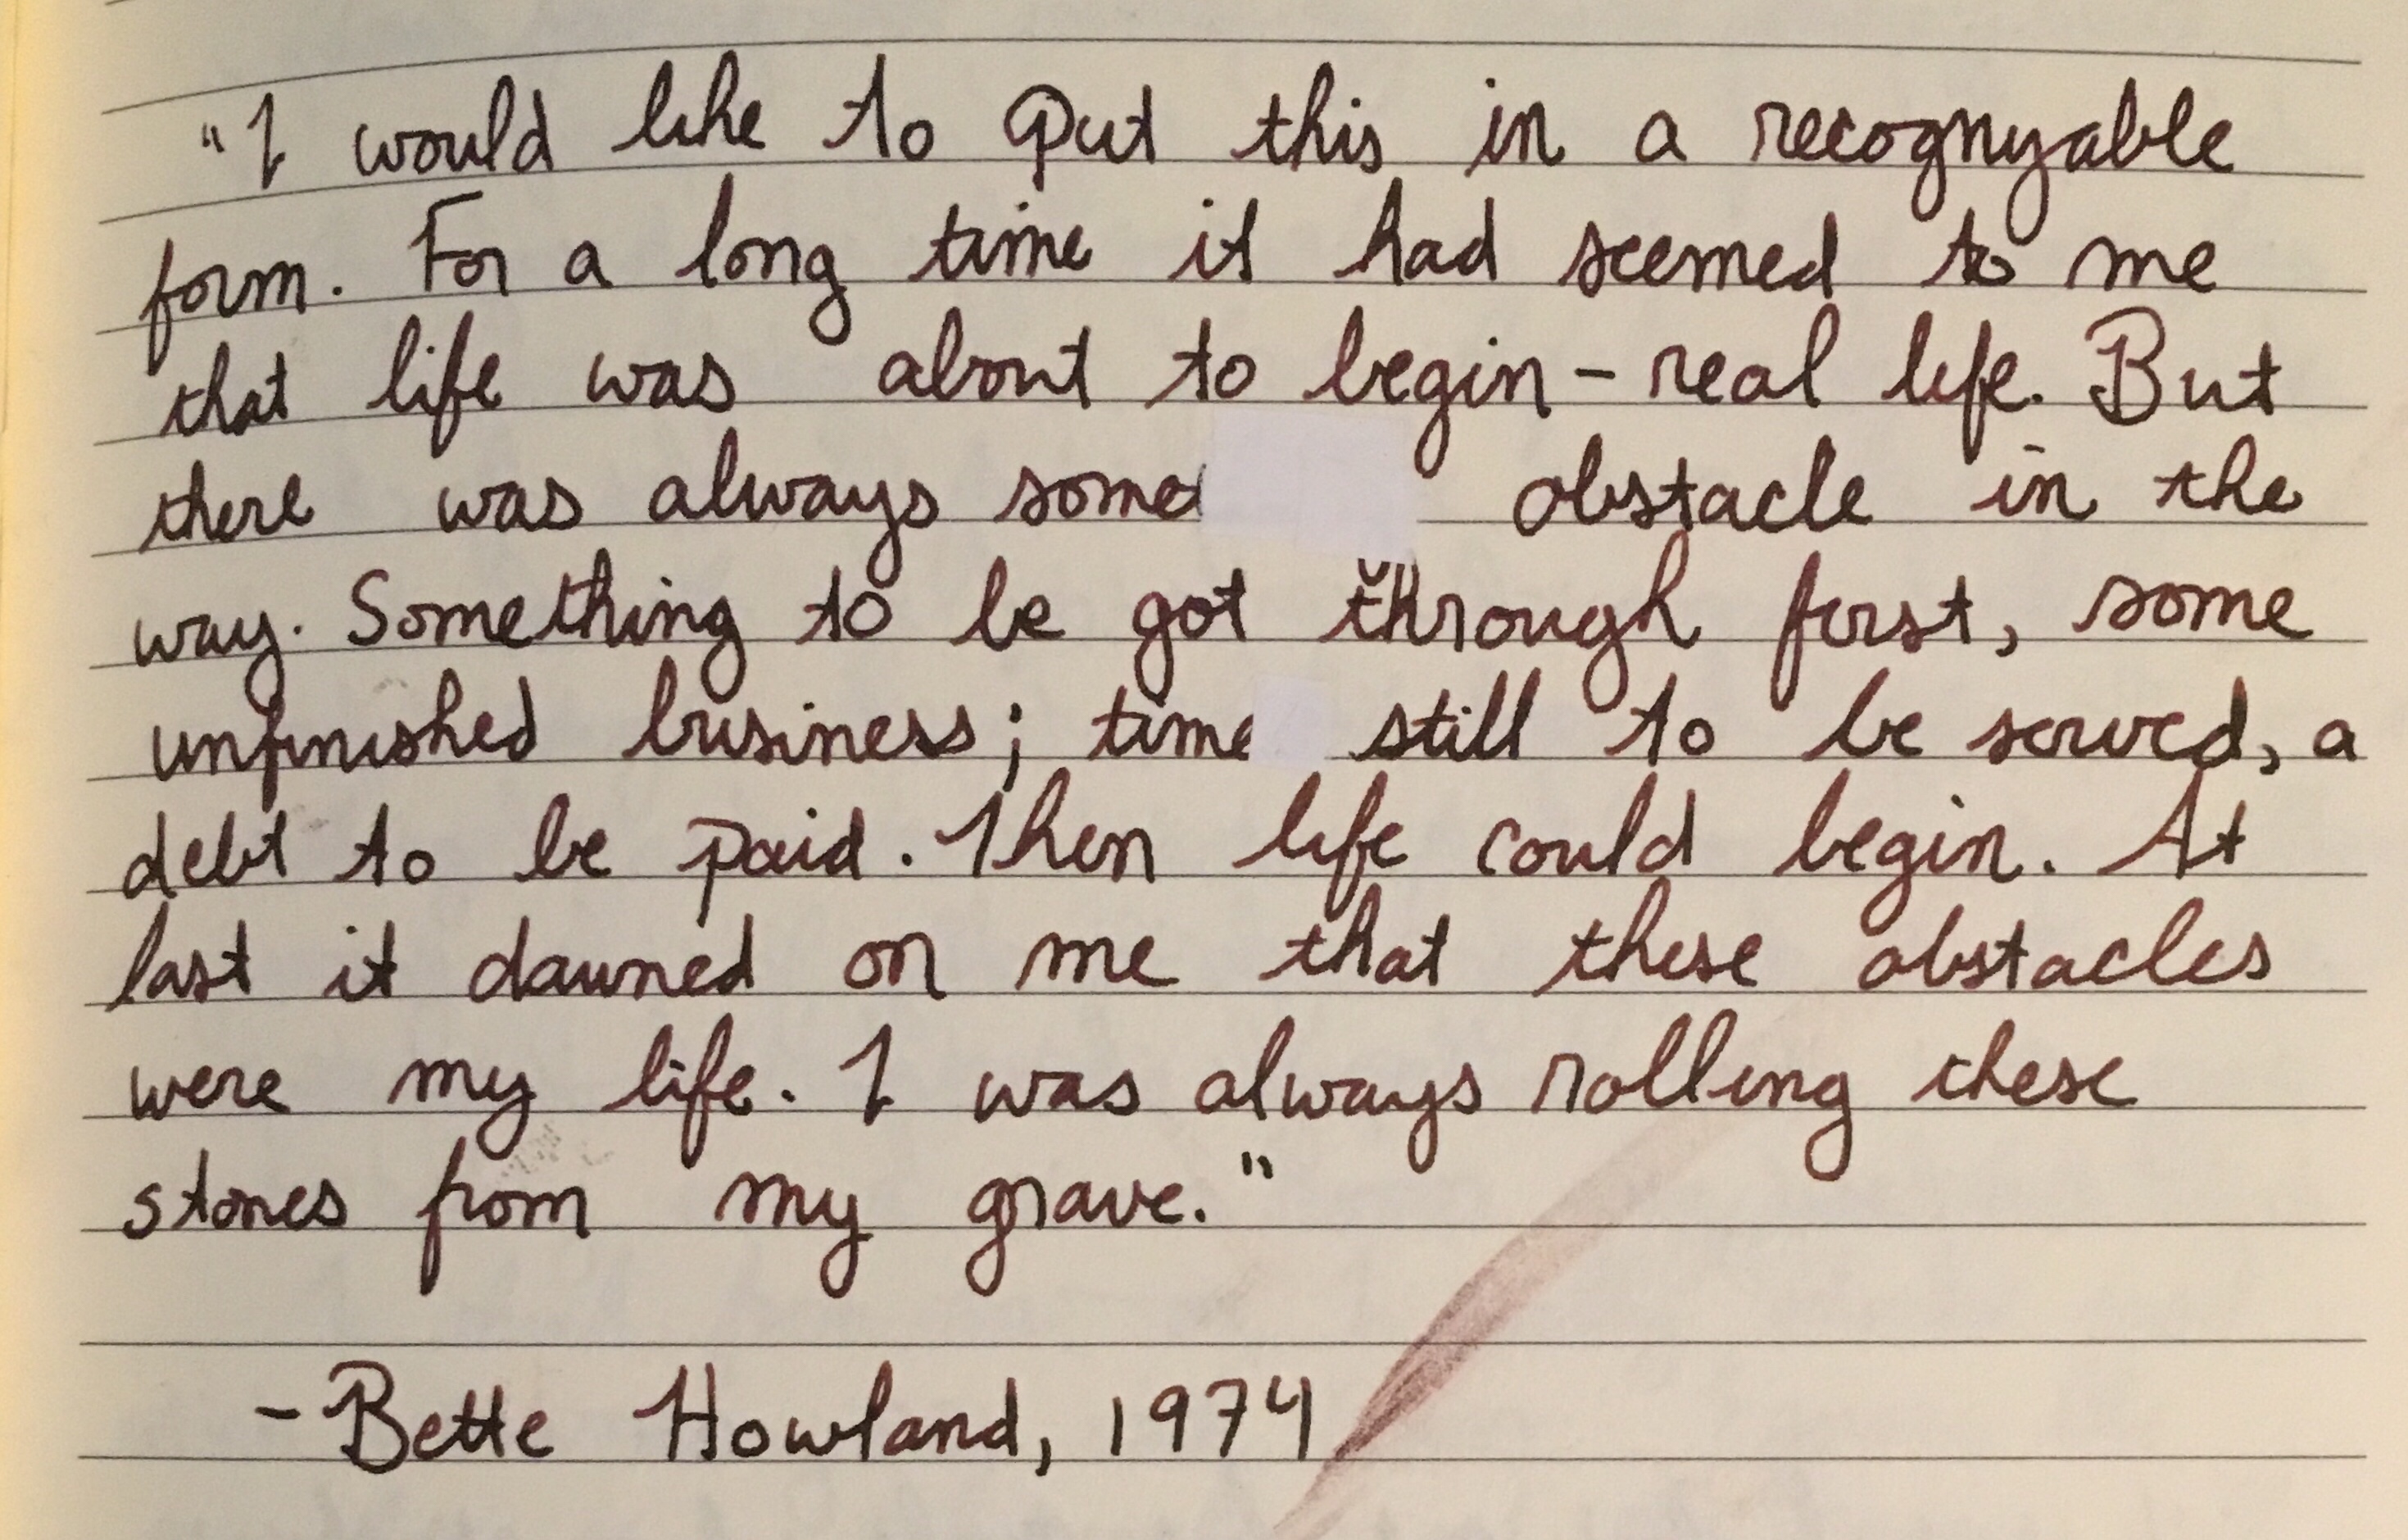 "I would like to put this in a recognyable
form. For a long time it had seemed to me
that life was about to begin - real life. But
there was always some obstacle in the
way. Something to be got through first, some
unfinished business; time still to be served, a
debt to be paid. Then life could begin. At
last it dawned on me that these obstacles
were my life. I was always rolling these
stones from my grave."
- Bette Howland, 1974